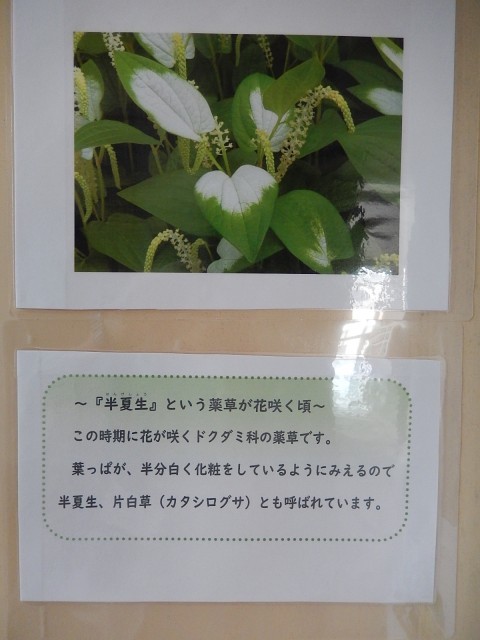 ～『半夏生』という薬草が花咲く頃～
この時期に花が咲くドクダミ科の薬草です。
葉っぱが、半分白く化粧をしているようにみえるので
半夏生、片白草（カタシログサ）とも呼ばれています。